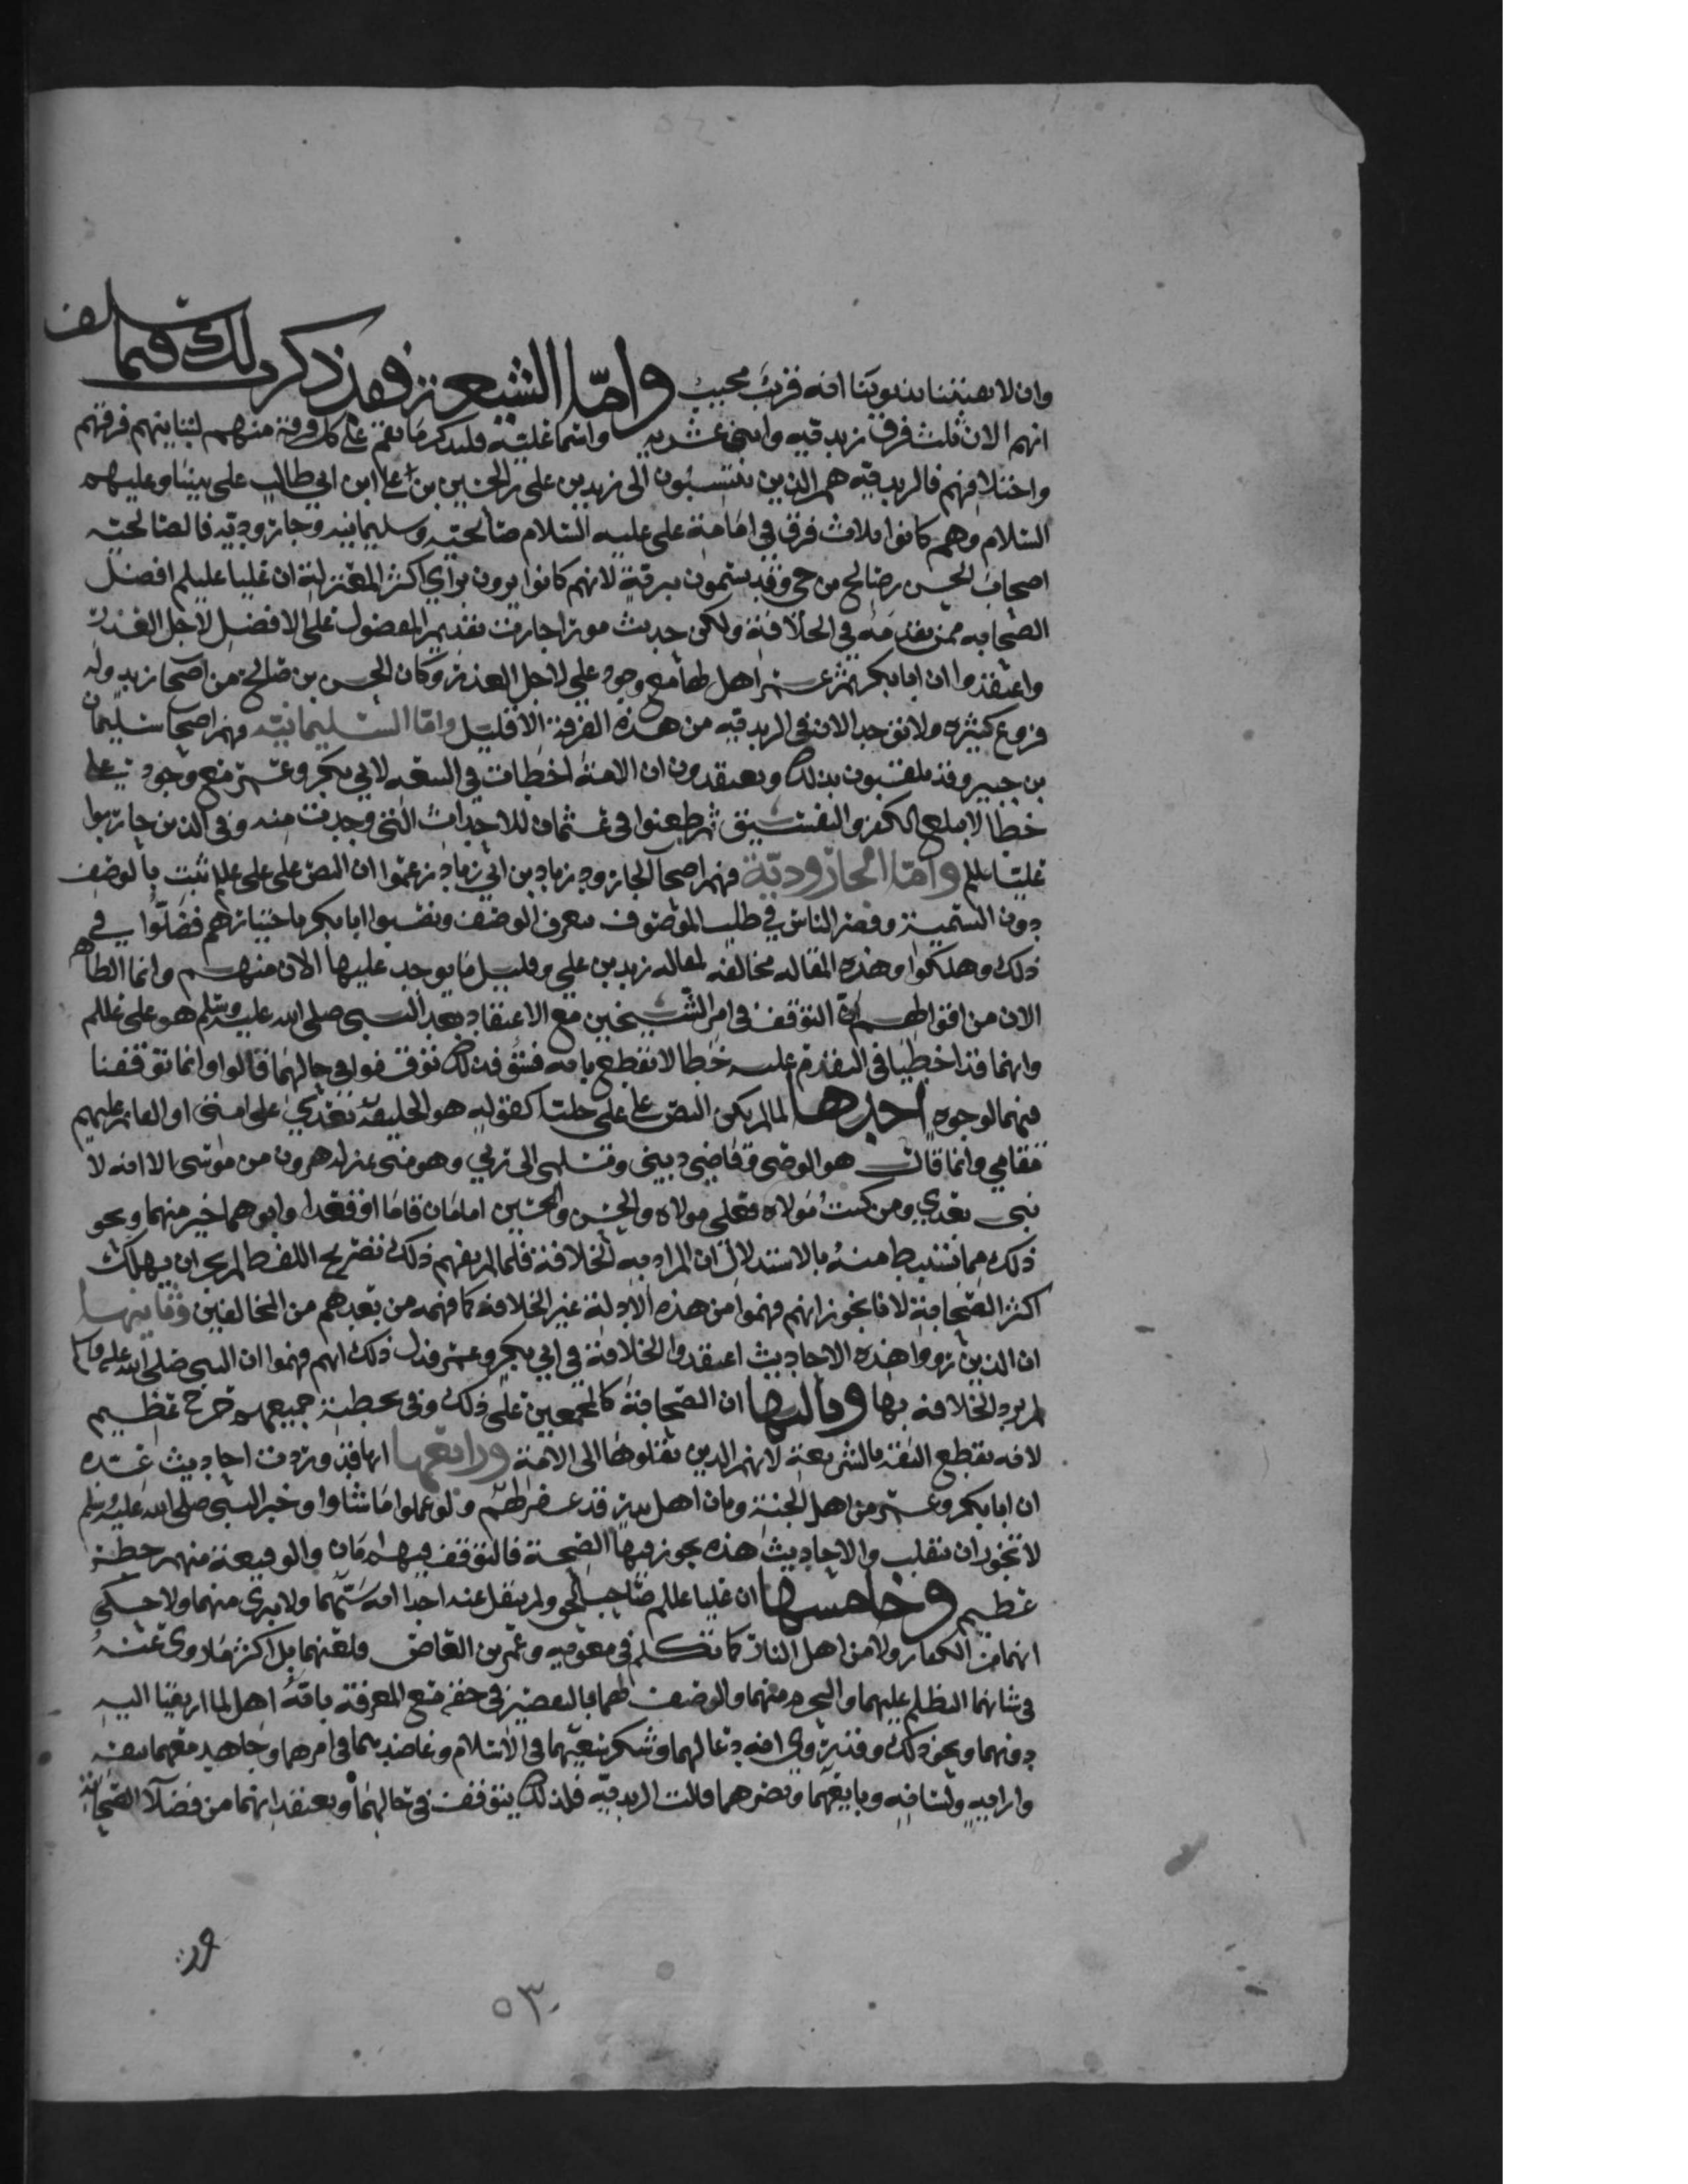 وان لا يصيبنا بذنوبنا انه قريب مجيب واما الشيعة فقد ذكر ذلك فيما سلف
انهم الان ثلث فرق زيديه واثنى عشريه واسماعليه فليذكر ما نقم على كل فرقة منهم لتباينهم فرقهم
واختلافهم فالزيديه هم الذين ينتسبون الى زيد بن على بن الحسين بن على ابن ابي طالب على نبينا وعليهم
السلام وهم كانوا ثلاث فرق فى امامة على عليه السلام صالحيه وسليمانيه وجاروديه فالصالحيه
اصحاب الحسن بن صالح بن حي وقد يسمون بترية لانهم كانوا يرون براي اكثر المعتزلة ان عليا عليلم افضل
الصحابه ممن تقدمه في الخلافة ولكن حديث مؤثر اجازت تقديم المفضول على الافضل لاجل العذر
واعتقدوا ان ابا بكر ثم عمر اهل لها مع وجود علي لاجل العذر وكان الحسن بن صالح من اصحاب زيد وله
فروع كثيره ولا نوجد الان في الزيديه من هذه الفرقة الا قليل واما السليمانيه فهم اصحاب سليمان
بن جبير وقد يلقبون بذلك ويعتقدون ان الامة اخطات في البيعه لابي بكر وعمر مع وجود على
خطا لا يبلغ الكفر والتفسيق ثم طعنوا في عثمان للاحداث التي وجدت منه وفي الذين حاربوا
عليا عللم واما الجاروديه فهم اصحاب الجارود زياد بن ابي زياد زعموا ان النص على على عللم ثبت بالوصف
دون التسمية وقصر الناس في طلب الموصوف بعرف الوصف ونصبوا ابا بكر باختيارهم فضلوا في
ذلك وهلكوا وهذه المقاله مخالفه لمقاله زيد بن علي وقليل ما يوجد عليها الان منهم وانما الظاهر
الان من اقوالهم ان التوقف في امر الشيخين مع الاعتقاد بعد النبي صلى الله عليه وسلم هو على عللم
وانهما قد اخطيا في التقدم عليه خطا لا نقطع بانه فسق فذلك توقفوا في حالهما قالوا وانما توقفنا
فيهما لوجوه احدها لما لم يكن النص على على جليا كقوله هو الخليفة بعدي على امتى او القايم عليهم
مقامي وانما قال هو الوصي وقاضي ديني ومسلمي الى ربي وهو منى بمنزلة هرون من موسى الا انه لا
نبى بعدي ومن كنت مولاه فعلى مولاه والحسن والحسين امامان قاما او قعدا وابوهما خير منهما ونحو
ذلك مما نستنبط منه بالاستدلال ان المراد به الخلافة فلما لم يفهم ذلك بتصريح اللفظ لم يجز ان يهلك
اكثر الصحابة لانا نجوز انهم فهموا من هذه الادلة غير الخلافه كما فهمه من بعدهم من المخالفين وثانيها
ان الذين رووا هذه الاحاديث اعتقدوا الخلافة في ابي بكر وعمر فدل ذلك انهم فهموا ان النبي صلى الله عليه وسلم
لم يرد الخلافه بها وثالثها ان الصحابة كالمجمعين على ذلك وفي تخطية جميعهم حرج عظيم
لانه يقطع الثقة بالشريعة لانهم الذين نقلوها الى الامة ورابعها انها قد وردت احاديث عده
ان ابا بكر وعمر من اهل الجنة وبان اهل بدر قد غفر لهم ولو عملوا ما شاوا وخبر النبي صلى الله عليه وسلم
لا نجوز ان تنقلب والاحاديث هذه يجوز فيها الصحة فالتوقف فيها امان والوقيعة منهم خطر
عظيم وخامسها ان عليا عللم صاحب الحق ولم ينقل عنه احد انه سبهما ولا برى منهما ولا حكى
انهما من الكفار ولا من اهل النار كما تكلم في معويه وعمرو بن العاص ولعنهما بل اكثر ما روى عنه
في شانهما التظلم عليهما والتجرم منهما والوصف لهما بالتقصير في حقه مع المعرفة بانه اهل لما ارتقيا اليه
دونهما ونحو ذلك وقد روي انه دعا لهما وشكر سعيهما في الاسلام وعاضدهما في امرهما وجاهد معهما بنفسه
وارايه ولسانه وبايعهما ونصرهما قالت الزيديه فلذلك يتوقف في حالهما ونعتقد انهما من فضلا الصحابة
ور
٥٣